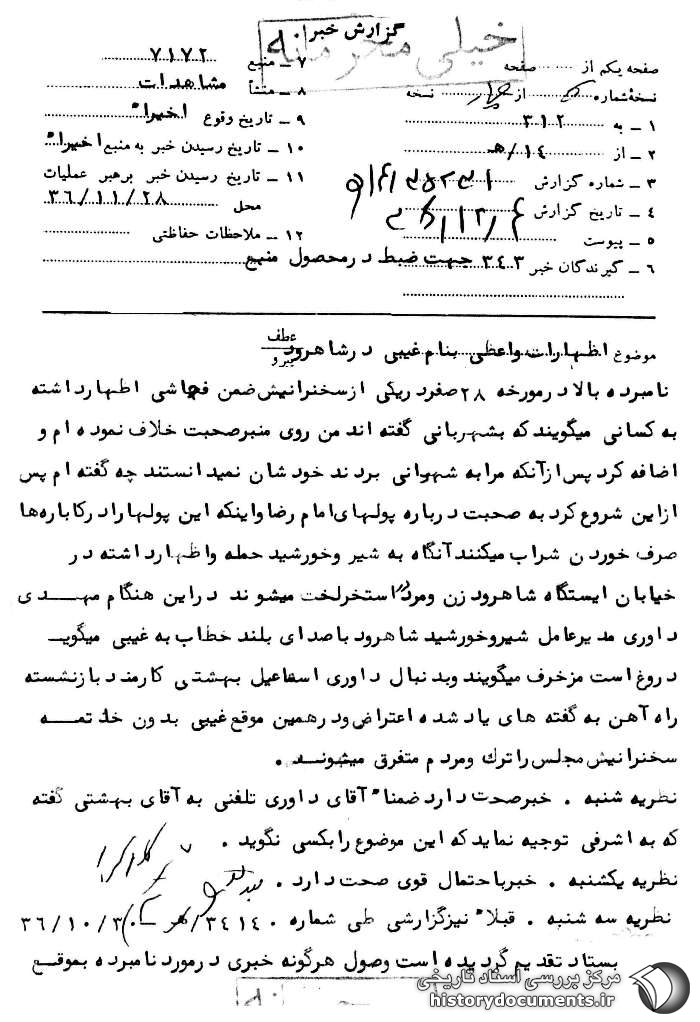 گزارش خبر
خیلی محرمانه
صفحه یکم از ........ صفحه
نسخه شماره ........ از چهار نسخه
۱ ـ به ۳۱۲
۲ ـ از ۱۴/هـ
۳ ـ شماره گزارش
۴ ـ تاریخ گزارش
۵ ـ پیوست
۶ ـ گیرندگان خبر ۳۴۳ جهت ضبط درمحصول منبع
۷ ـ منبع ۷۱۷۲
۸ ـ منشأ مشاهدات
۹ ـ تاریخ وقوع اخیراً
۱۰ ـ تاریخ رسیدن خبر به منبع اخیراً
۱۱ ـ تاریخ رسیدن خبر برهبر عملیات
محل ۳۶/۱۱/۲۸
۱۲ ـ ملاحظات حفاظتی
عطف
پیرو
موضوع اظهارات واعظی بنام غیبی درشاهرود
نامبرده بالا درمورخه ۲۸ صفردریکی ازسخنرانیش ضمن فحاشی اظهارداشته
به کسانی میگویند که بشهربانی گفته اند من روی منبرصحبت خلاف نموده ام و
اضافه کرد پس ازآنکه مرا به شهربانی بردند خودشان نمیدانستند چه گفته ام پس
ازاین شروع کرد به صحبت درباره پولهای امام رضا واینکه این پولهارا درکاباره‌ها
صرف خوردن شراب میکنند آنگاه به شیر وخورشید حمله واظهارداشته در
خیابان ایستگاه شاهرود زن ومرد استخرلخت میشوند دراین هنگام مهدی
داوری مدیرعامل شیروخورشید شاهرود باصدای بلند خطاب به غیبی میگوید
دروغ است مزخرف میگویند وبدنبال داوری اسماعیل بهشتی کارمند بازنشسته
راه آهن به گفته های یاد شده اعتراض ودرهمین موقع غیبی بدون خاتمه
سخنرانیش مجلس را ترك ومردم متفرق میشوند .
نظریه شنبه . خبرصحت دارد ضمناً آقای داوری تلفنی به آقای بهشتی گفته
که به اشرفی توجیه نماید که این موضوع را بکسی نگوید .
نظریه یکشنبه . خبرباحتمال قوی صحت دارد .
نظریه سه شنبه . قبلاً نیزگزارشی طی شماره ۳۴۱۴۰/هـ ۳۶/۱۰/۳۰
بستاد تقدیم گردیده است وصول هرگونه خبری درمورد نامبرده بموقع
مرکز بررسی اسناد تاریخی
historydocuments.ir